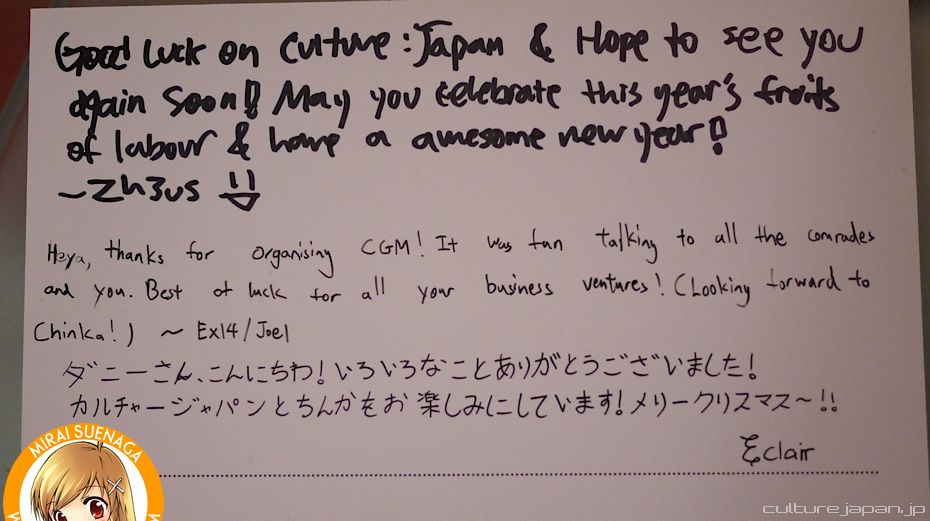 Good Luck on Culture:Japan & Hope to see you
again soon!! May you celebrate this year's fruits
of labour & have a awesome new year!
~Zh3us
Heya, thanks for organising CGM! It was fun talking to all the comrades
and you. Best of luck for all your business ventures! (Looking forward to
Chinka!) ~ Ex14/Joel
ダニーさん、こんにちわ!いろいろなことありがとうございました!
カルチャージャパンとちんかをお楽しみにしています!メリークリスマス〜!!
Eclair
MIRAI SUENAGA
culturejapan.jp